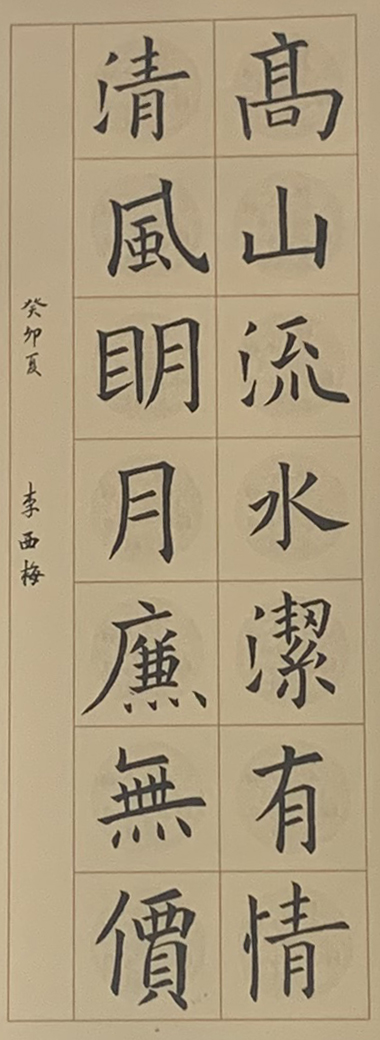 髙山流水潔有情
清風眀月廉無價
癸卯夏 李西梅